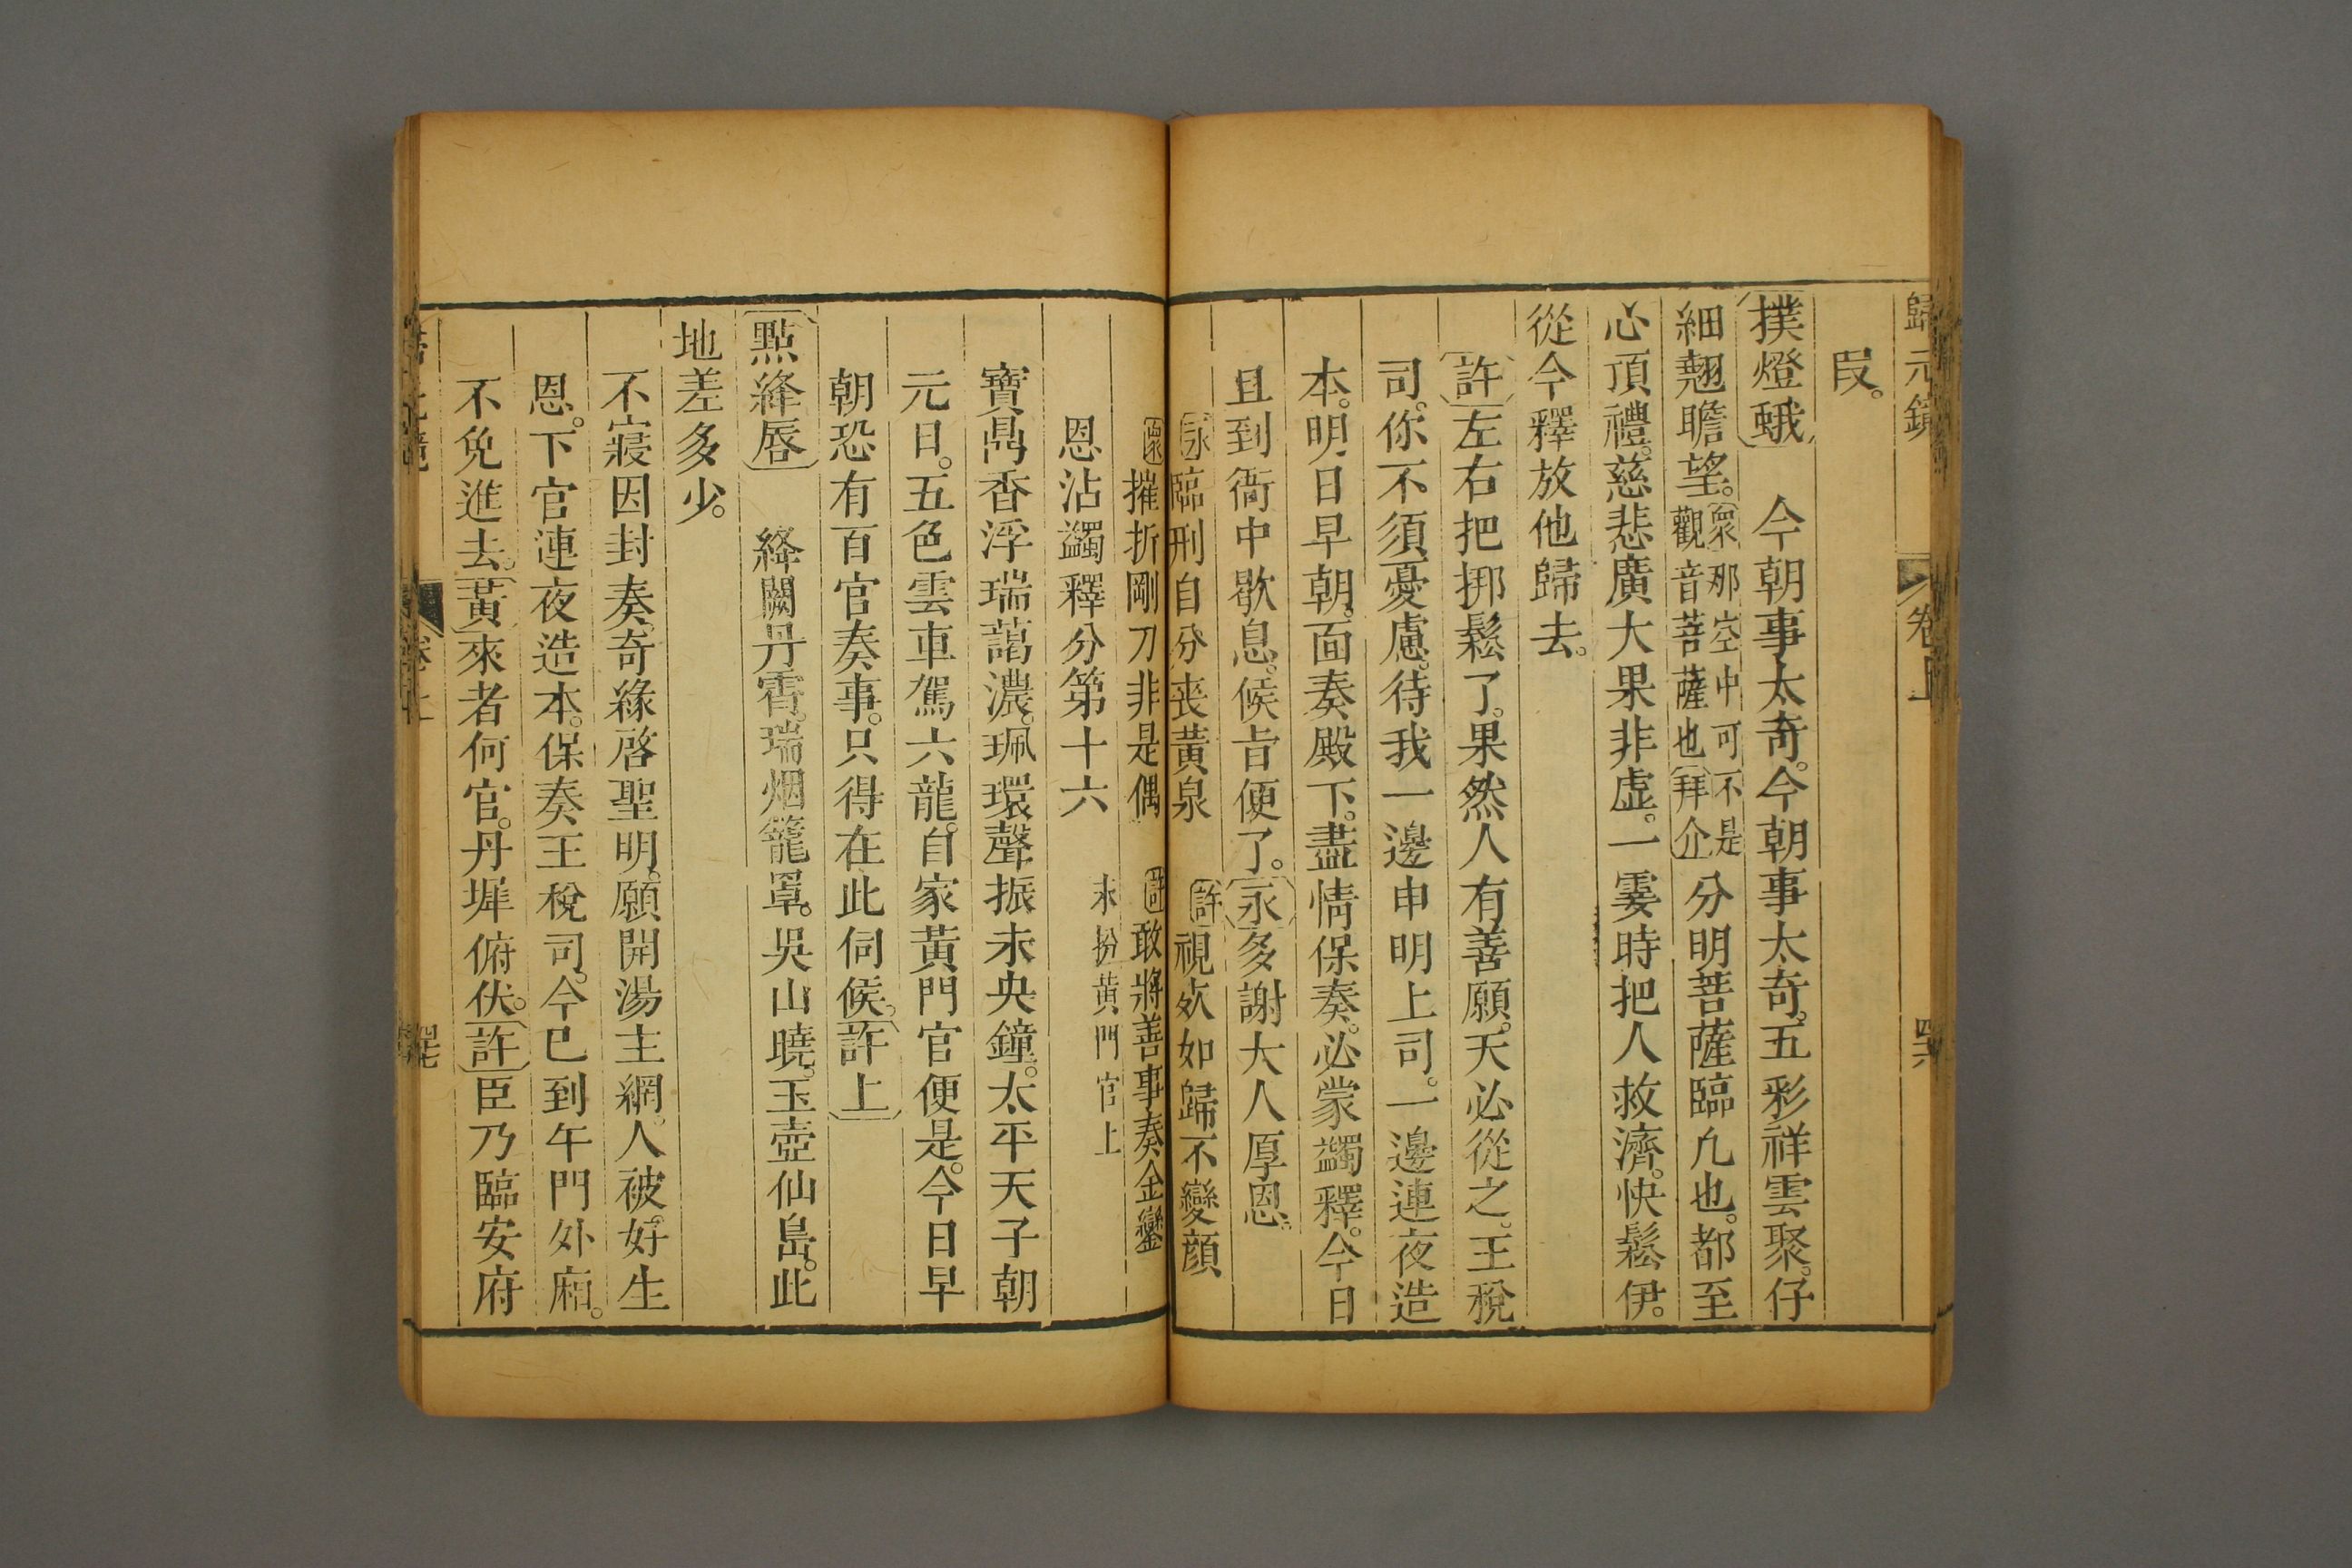 歸元鏡 卷上
段。
〔撲燈蛾〕 今朝事太奇。今朝事太奇。五彩祥雲聚。仔
細翹瞻望。〔衆〕那空中可不是觀音菩薩也〔拜介〕分明菩薩臨凢也。都至
心頂禮。慈悲廣大果非虛。一霎時把人救濟。快鬆伊。
從今釋放他歸去。
〔許〕左右把挷鬆了。果然人有善願。天必從之。王稅
司。你不須憂慮。待我一邊申明上司。一邊連夜造
本。明日早朝。面奏殿下。盡情保奏。必蒙蠲釋。今日
且到衙中歇息。候㫖便了。〔永〕多謝大人厚恩。
〔永〕臨刑自分喪黃泉 〔許〕視死如歸不變顔
〔衆〕摧折剛刀非是偶 〔許〕敢將善事奏金鑾
恩沾蠲釋分第十六
末扮黃門官上
寶鼎香浮瑞藹濃。珮環聲振未央鐘。太平天子朝
元日。五色雲車駕六龍。自家黃門官便是。今日早
朝恐有百官奏事。只得在此伺候。〔許上〕
〔點絳唇〕 絳闕丹霄。瑞烟籠罩。吳山曉。玉壺仙島。此
地差多少。
不寢因封奏。奇緣啓聖明。願開湯主網。人被好生
恩。下官連夜造本。保奏王稅司。今已到午門外廂。
不免進去。〔黃〕來者何官。丹墀俯伏。〔許〕臣乃臨安府
卷上